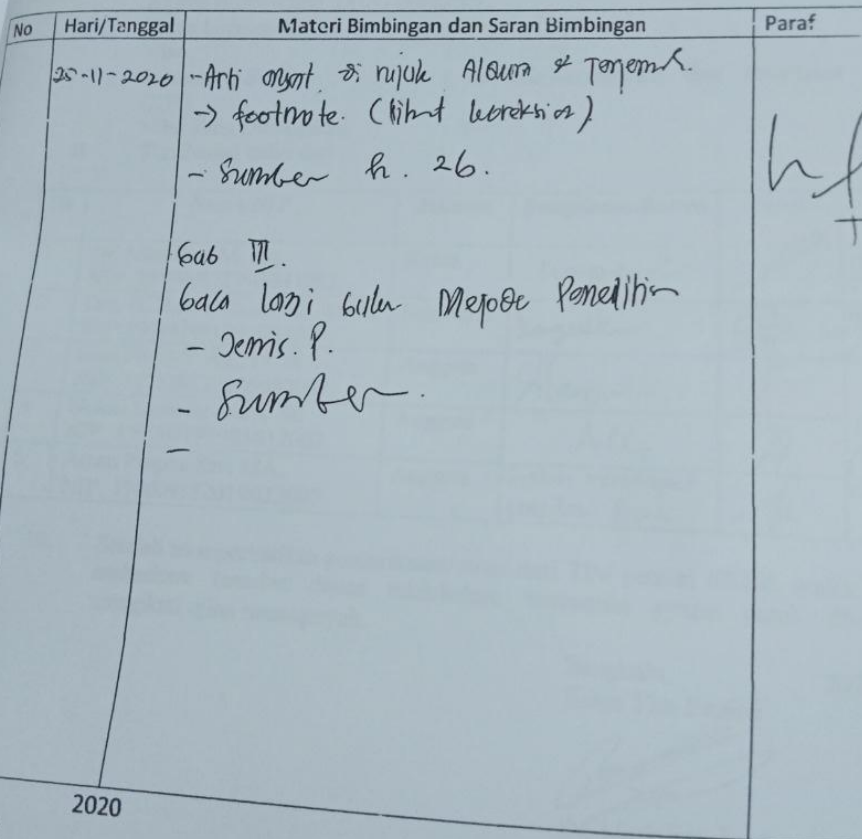 No Hari/Tanggal Materi Bimbingan dan Saran Bimbingan Paraf
25-11-2020 - Arti ayat di rujuk AlQuran & Terjemh.
→ footnote. (lihat koreksian)
- Sumber h. 26.
Bab III.
baca lagi buku Metode Penelitian
- Jenis. P.
- Sumber.
-
2020